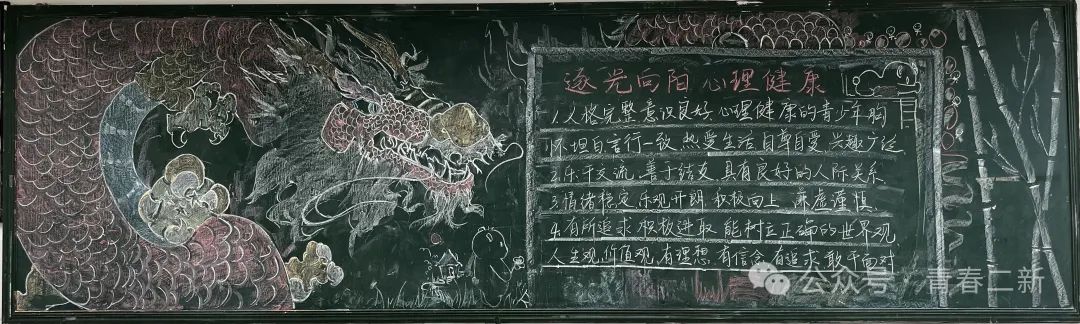 逐光向阳 心理健康
1.人格完整 意识良好 心理健康的青少年胸
怀坦白言行一致,热爱生活 自尊自爱,兴趣广泛
2.乐于交流,善于结交,具有良好的人际关系
3.情绪稳定 乐观开朗 积极向上 谦虚谨慎
4.有所追求 积极进取 能树立正确的世界观,
人生观,价值观,有理想 有信念 有追求 敢于面对
公众号·青春二新